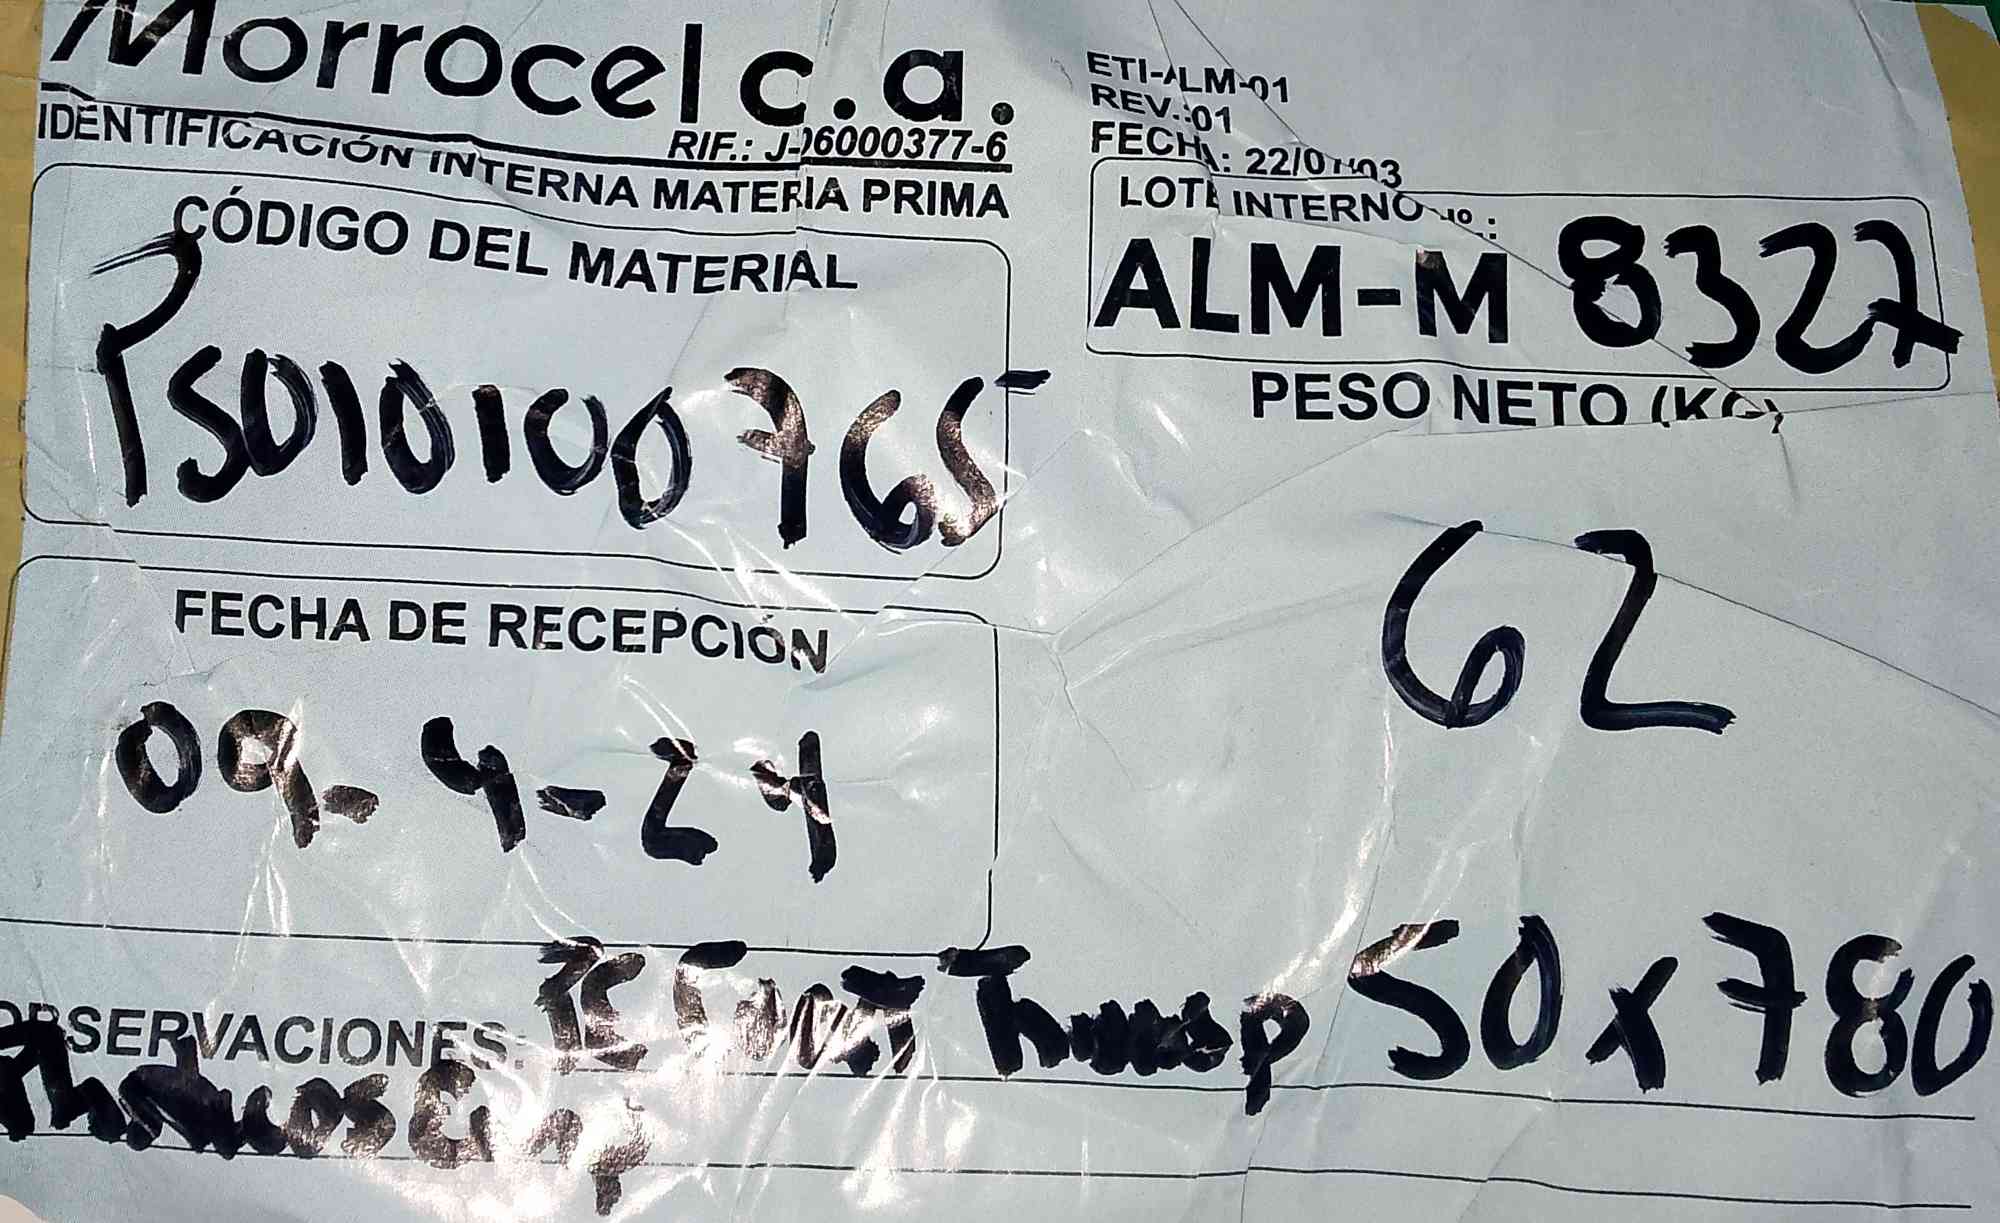 Morrocel c.a.
RIF.: J-06000377-6
IDENTIFICACIÓN INTERNA MATERIA PRIMA
ETI-ALM-01
REV.:01
FECHA: 22/07/03
CÓDIGO DEL MATERIAL
PS010100765
LOTE INTERNO Nº.:
ALM-M 8327
PESO NETO (KG)
62
FECHA DE RECEPCIÓN
09-4-24
OBSERVACIONES: Transp 50x780